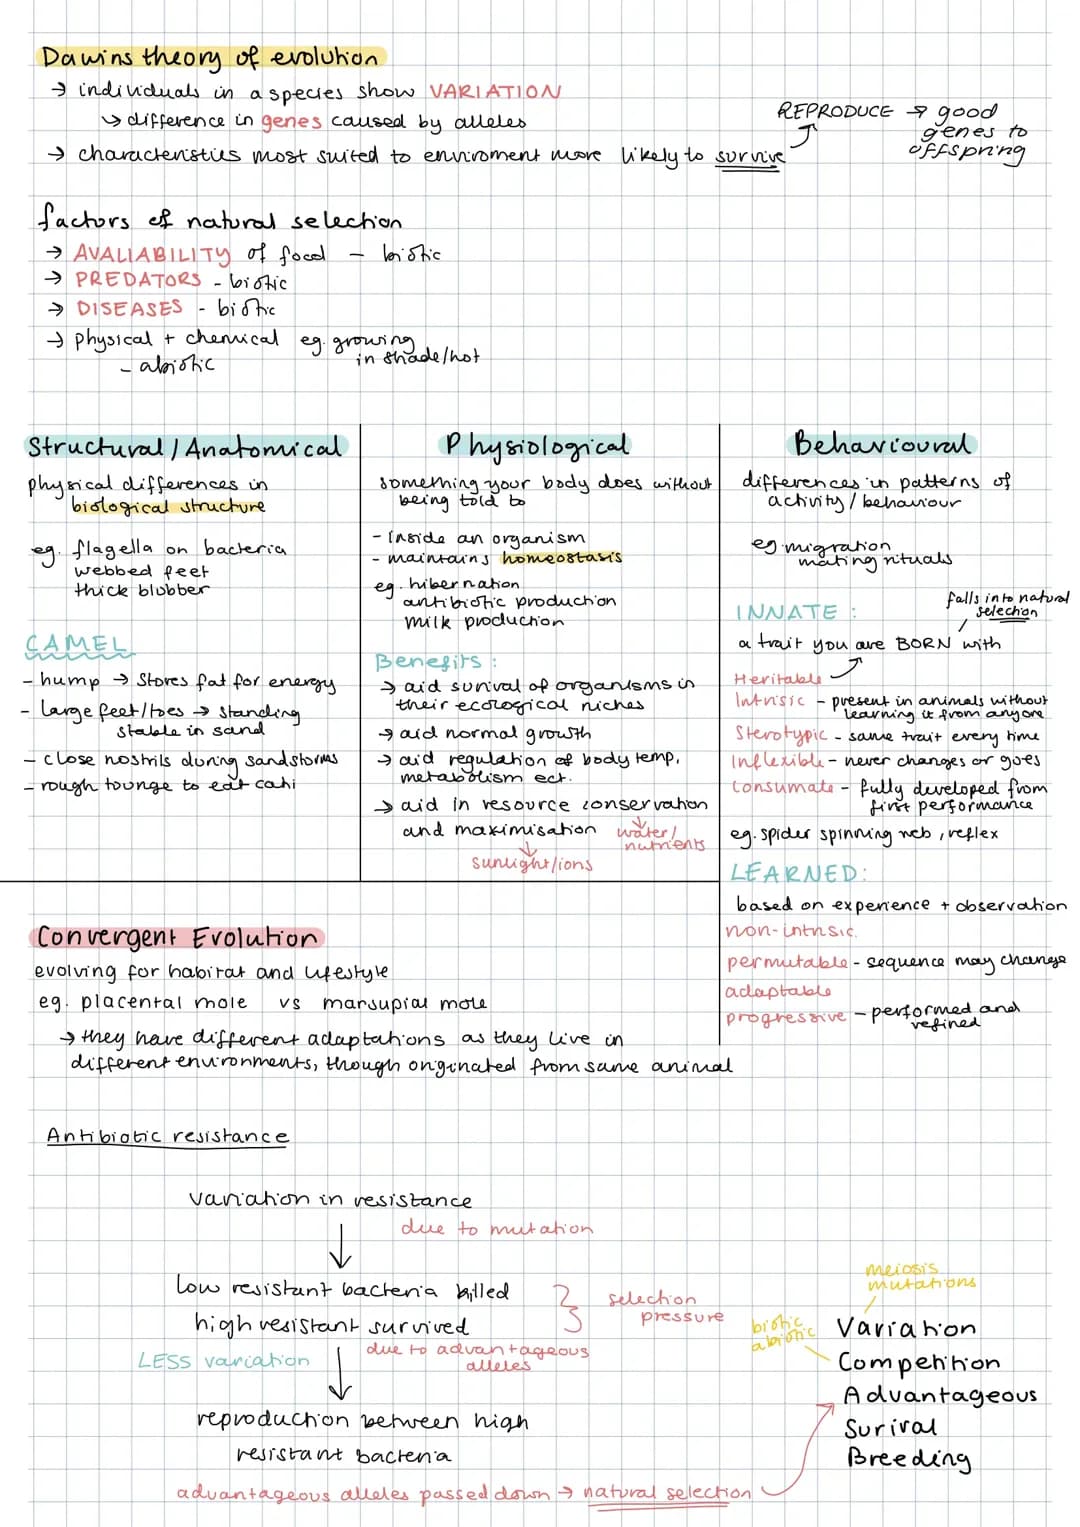 Dawins theory of evolution
→ individuals in a species show VARIATION
↳ difference in genes caused by alleles
→ characteristics most suited to enviroment more likely to survive
REPRODUCE → good
genes to
offspring
factors of natural selection
→ AVALIABILITY of food - biotic
→ PREDATORS - biotic
→ DISEASES - biotic
→ physical + chemical eg. growing
in shade/hot
- abiotic
Structural / Anatomical
physical differences in
biological structure
eg. flagella on bacteria
webbed feet
thick blubber
CAMEL
- hump → stores fat for energy
- large feet/toes → standing
stable in sand
- close nostrils during sandstorms
- rough tounge to eat cahi
Physiological
something your body does without
being told to
- inside an organism
- maintains homeostasis
eg. hibernation
antibiotic production
milk production
Benefits :
→ aid surival of organisms in
their ecological niches
→ aid normal growth
→ aid regulation of body temp,
metabolism ect.
→ aid in resource conservation
and maximisation
water/
nutrients
sunlight/ions
Behavioural
differences in patterns of
activity / behaviour
eg. migration
mating rituals
falls into natural
selection
INNATE :
a trait you are BORN with
Heritable
Intrisic - present in animals without
learning it from anyone
Sterotypic - same trait every time
Inflexible - never changes or goes
Consumate - fully developed from
first performance
eg. spider spinning web, reflex
LEARNED:
based on experience + observation
non-intrisic
permutable - sequence may change
adaptable
progressive - performed and
refined
Convergent Evolution
evolving for habitat and lifestyle
eg. placental mole vs marsupial mole
→ they have different adaptations as they live in
different environments, though originated from same animal
Antibiotic resistance
variation in resistance
due to mutation
low resistant bacteria killed
high resistant survived
selection
pressure
LESS variation
due to advantageous
alleles
reproduction between high
resistant bacteria
advantageous alleles passed down → natural selection
meiosis
mutations
biotic
abiotic
Variation
Competition
Advantageous
Surival
Breeding